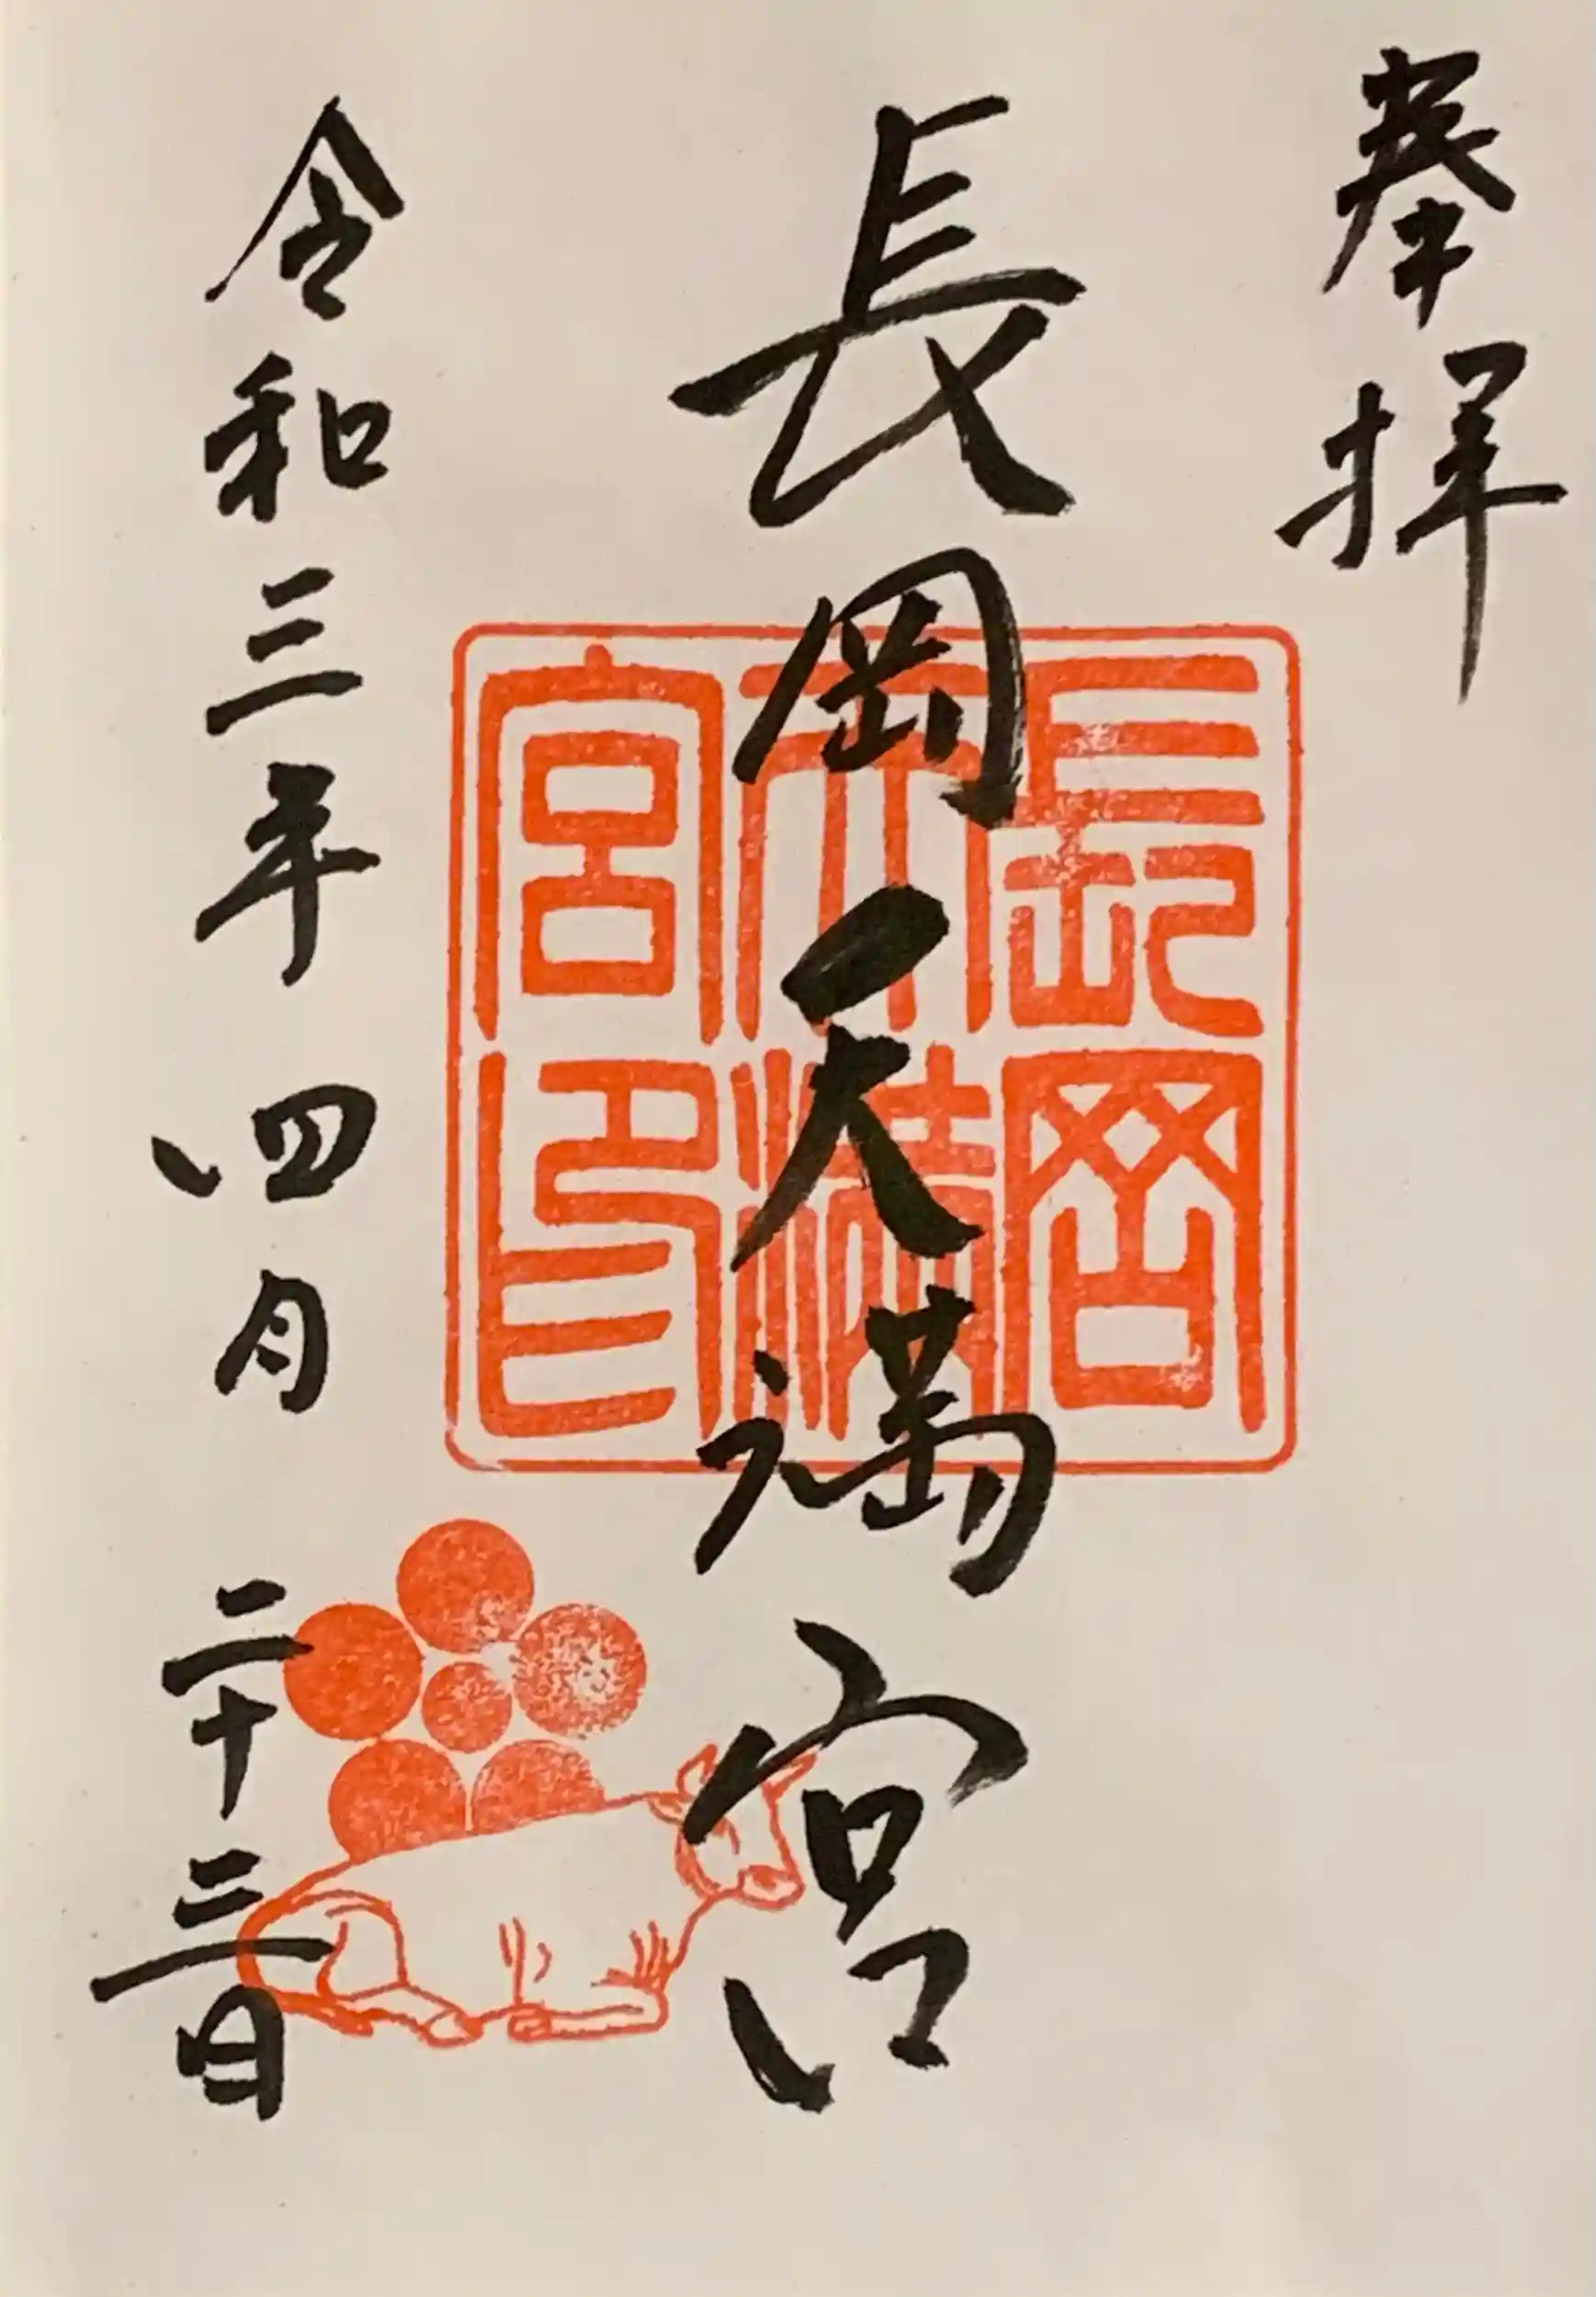 奉拝
長岡天満宮
長岡
天満
宮印
令和三年四月二十三日